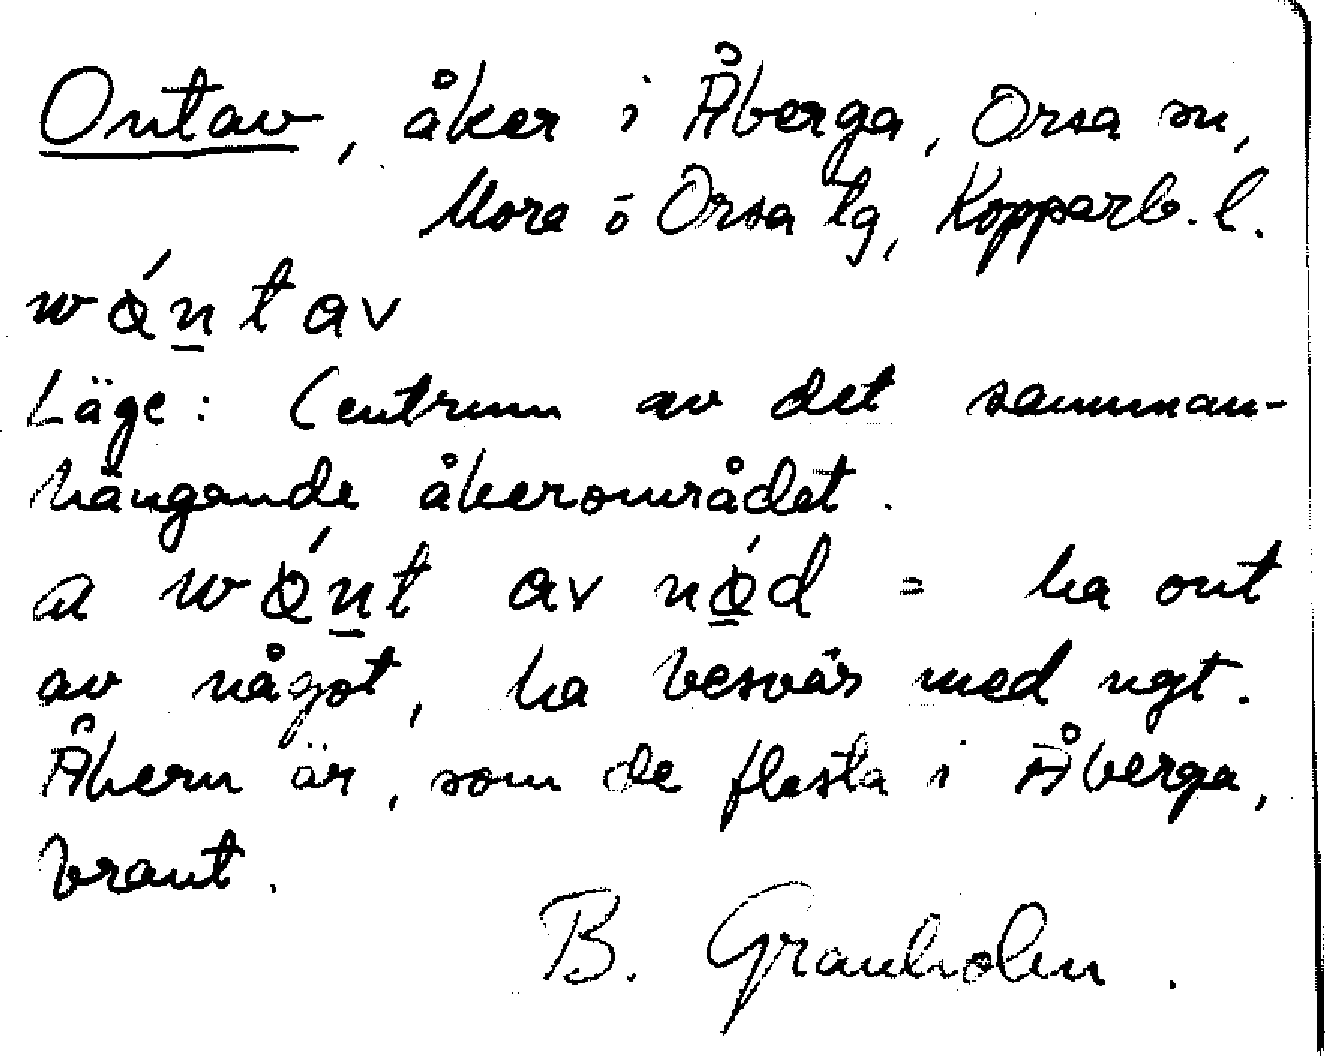 Ontav, åker i Åberga, Orsa sn,
Mora o Orsa tg, Kopparb. l.
wǫ́n̲tav
Läge: Centrum av det samman-
hängande åkerområdet.
a wǫ́n̲t av nǫ̲́d = ha ont
av något, ha besvär med ngt.
Åkern är, som de flesta i Åberga,
brant.
B. Granholm.